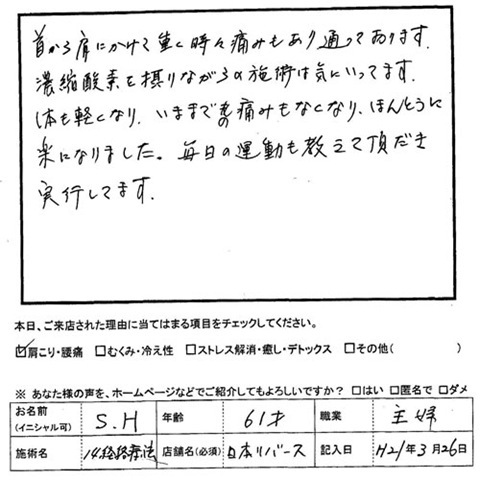 首から肩にかけて重く時々痛みもあり通っております.
濃縮酸素を摂りながらの施術は気にいってます.
体も軽くなり、いままでの痛みもなくなり、ほんとうに
楽になりました。毎日の運動も教えて頂だき
実行してます.
本日、ご来店された理由に当てはまる項目をチェックしてください。
☑肩こり・腰痛 □むくみ・冷え性 □ストレス解消・癒し・デトックス □その他( )
※ あなた様の声を、ホームページなどでご紹介してもよろしいですか? □はい □匿名で □ダメ
お名前(イニシャル可) S.H 年齢 61才 職業 主婦
施術名 14経絡療法 店舗名(必須) 日本リバース 記入日 H21年3月26日